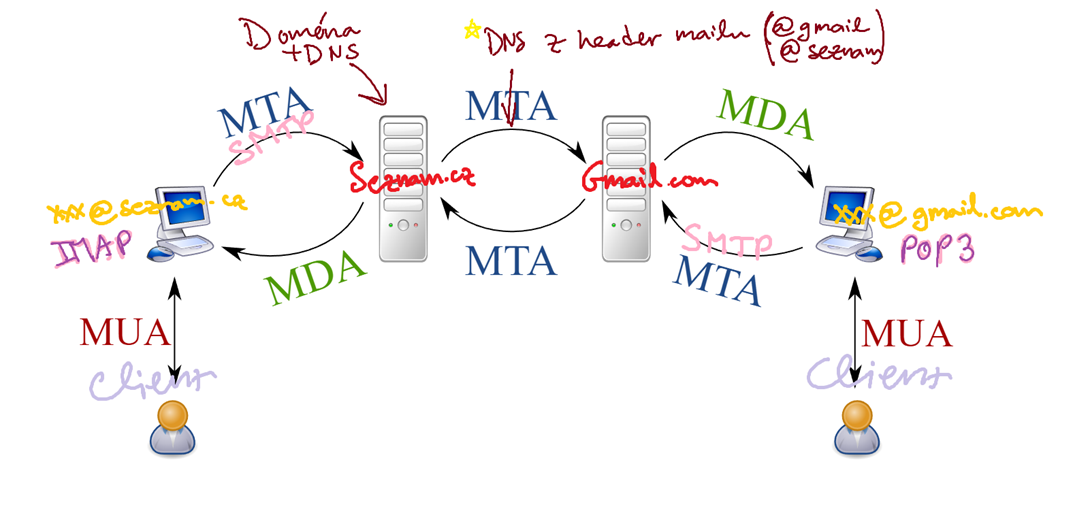 Doména
+DNS
DNS z header mailu (@gmail
@seznam)
MTA
SMTP
MTA
MDA
Seznam.cz
Gmail.com
xxx@seznam.cz
IMAP
xxx@gmail.com
POP3
MDA
MTA
SMTP
MTA
MUA
Client
MUA
Client